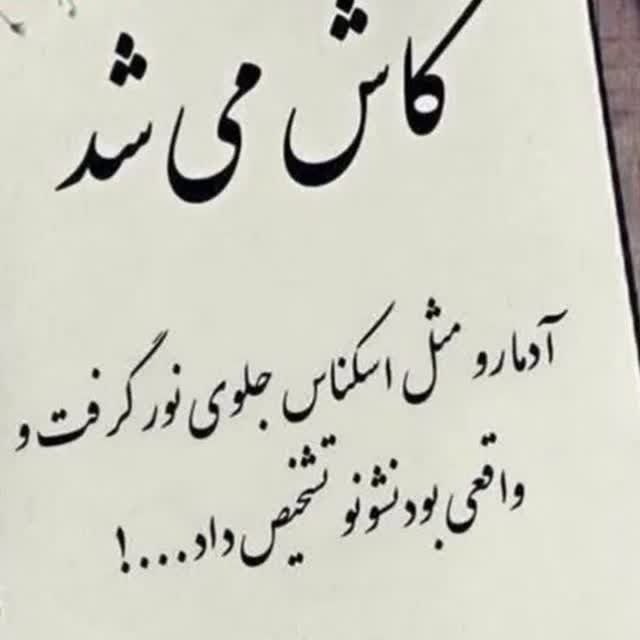 کاش می شد
آدمارو مثل اسکناس جلوی نور گرفت و
واقعی بودنشونو تشخیص داد....!